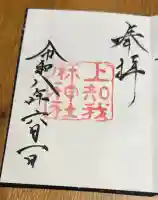 奉拝
上知我
麻神社
令和八年六月一日